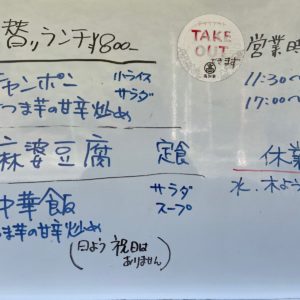 替りランチ¥800-
チャンポン 小ライス
サラダ
つま芋の甘辛炒め
麻婆豆腐 定食
中華飯 サラダ
スープ
つま芋の甘辛炒め
(日よう 祝日は
ありません)
TAKE
OUT
できます
営業時
11:30〜
17:00〜
休業
水.木よう